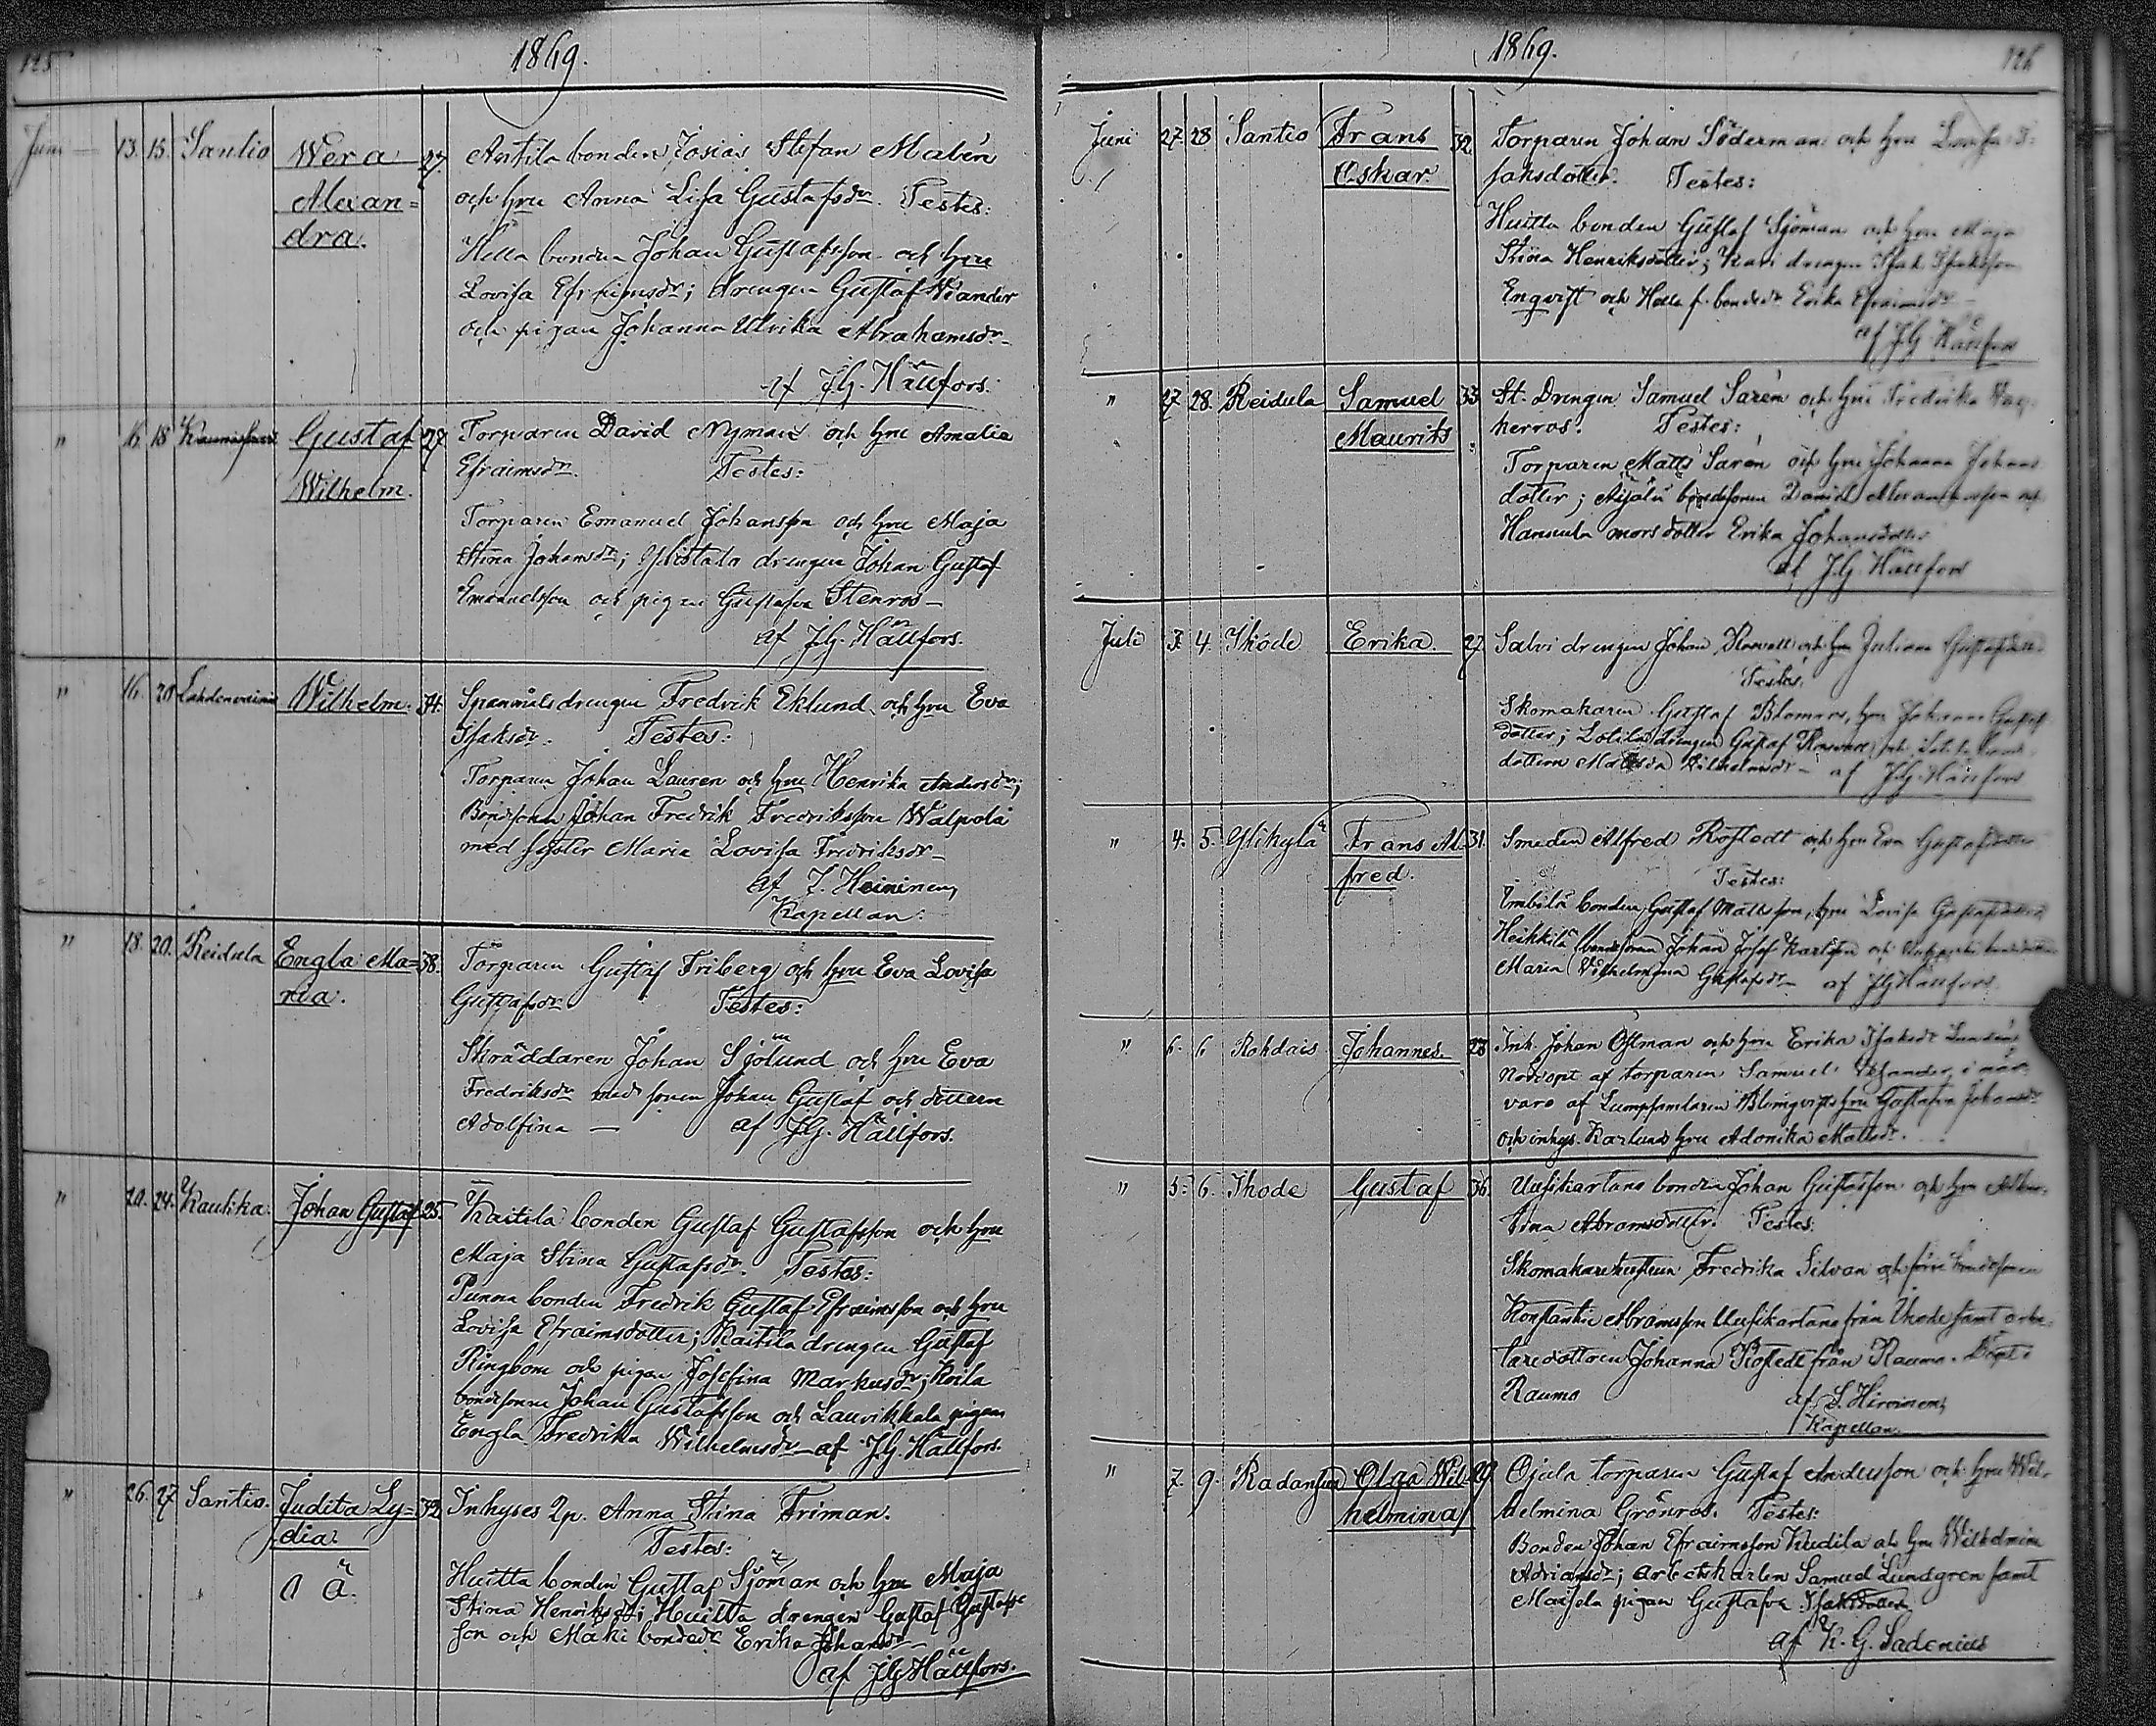 125
1869.
Juni 13. 15. Santio Wera 27. Anttila bonden Josias Stefan Malén
Alexan= och hru Anna Lisa Gustafsdr. Testes:
dra. Hella bonden Johan Gustafsson och hru
Lovisa Efraimsdr; drengen Gustaf Wiander
och pigan Johanna Ulrika Abrahamsdr
af J.G. Hällfors.
" 16. 18 Gustaf 27 Torparen David Nyman och hru Amalia
Wilhelm. Efraimsdr. Testes:
Torparen Emanuel Johansson och hru Maja
Stina Johansdr; Ylistalo drengen Johan Gustaf
Emanuelsson och pigan Gustafva Stenros
af J.G. Hällfors.
" 16. 20 Wilhelm. 34. Spanmålsdrengen Fredrik Eklund och hru Eva
Isaksdr. Testes:
Torparen Johan Lauren och hru Henrika Andersdr;
Bondsonen Johan Fredrik Fredriksson Walpola
med syster Maria Lovisa Fredriksdr
af J. Heininen,
Kapellan.
" 18. 20. Reidula Engla Ma= 38. Torparen Gustaf Friberg och hru Eva Lovisa
ria. Gustafsdr Testes:
Skräddaren Johan Sjölund och hru Eva
Fredriksdr med sonen Johan Gustaf och dottern
Adolfina — af J.G. Hällfors.
" 20. 24. Kaulika. Johan Gustaf 25. Kaitila bonden Gustaf Gustafsson och hru
Maja Stina Gustafsdr. Testes:
Punna bonden Fredrik Gustaf Efraimsson och hru
Lovisa Efraimsdotter; Kaitila drengen Gustaf
Ringbom och pigan Josefina Markusdr; Koila
bondesonen Johan Gustafsson och Laurikkala pigan
Engla Fredrika Wilhelmsdr af J.G. Hällfors.
" 26. 27 Santio. Judita Ly= 32 Inhyses Qp. Anna Stina Friman.
dia. Testes:
o ä. Huitta bonden Gustaf Sjöman och hru Maja
Stina Henriksdr; Huitta drengen Gustaf Gustafs
son och Mäki bondedr Erika Johansdr
af J.G. Hällfors.
126
1869.
Juni 27. 28 Santio Frans 32 Torparen Johan Söderman och hru Lovisa I=
Oskar. saksdotter. Testes:
Huitta bonden Gustaf Sjöman och hru Maja
Stina Henriksdotter; Kari drengen Isak Isaksson
Engvist och Hella f. bondedr Erika Efraimsdr
af J.G. Hällfors
" 27. 28. Reidula Samuel 33 St. Drengen Samuel Sarén och hru Fredrika
Maurits herros. Testes:
Torparen Matts Sarén och hru Johanna Johans
dotter; Aijälä bondesonen David Alexandersson och
Hannula mors dotter Erika Johansdotter
af J.G. Hällfors
Juli 3. 4. Ihode Erika. 27. Salvi drengen Johan och hru Juliana Gustafsdotter
Testes.
Skomakaren Gustaf Blomros, hru Johanna Gustafs
dotter; Lotila drengen Gustaf
dottern Matilda Wilhelmsdr af J.G. Hällfors
" 4. 5. Ylikylä Frans Al= 31. Smeden Alfred Rostedt och hru Eva Gustafsdotter
fred. Testes:
bonden Gustaf Mattsson, hru Lovisa Gustafsdotter
Heikkilä bondesonen Johan Josef Karlsson och
Maria Wilhelmina Gustafsdr af J.G. Hällfors
" 6. 6 Rohdais Johannes. 28 Inh. Johan Östman och hru Erika Isaksdr
Nöddöpt af torparen Samuel i när=
varo af Lumpsamlaren Blomqvists hru Gustafva Johansdr
och inhys. Karlunds hru Adonika Mattsdr.
" 5. 6. Ihode Gustaf 36. Uusikartano bonden Johan Gustafsson och hru
tina Abramsdotter. Testes:
Skomakarehustrun Fredrika Silvan och förre bondesonen
Konstantin Abramsson Uusikartano från Ihode samt arbe=
taredottren Johanna Rostedt från Raumo. Döpt i
Raumo af S. Hirvinen,
Kapellan.
" 7. 9. Radansuo Olga Wil= 29. Ojala torparen Gustaf Andersson och hru Wil=
helmina helmina Grönroos. Testes:
Bonden Johan Efraimsson Kudila och hru Wilhelmina
Adriansdr; arbetskarlen Samuel Lundgren samt
pigan Gustafva Isaksdotter
af K. G. Sadenius